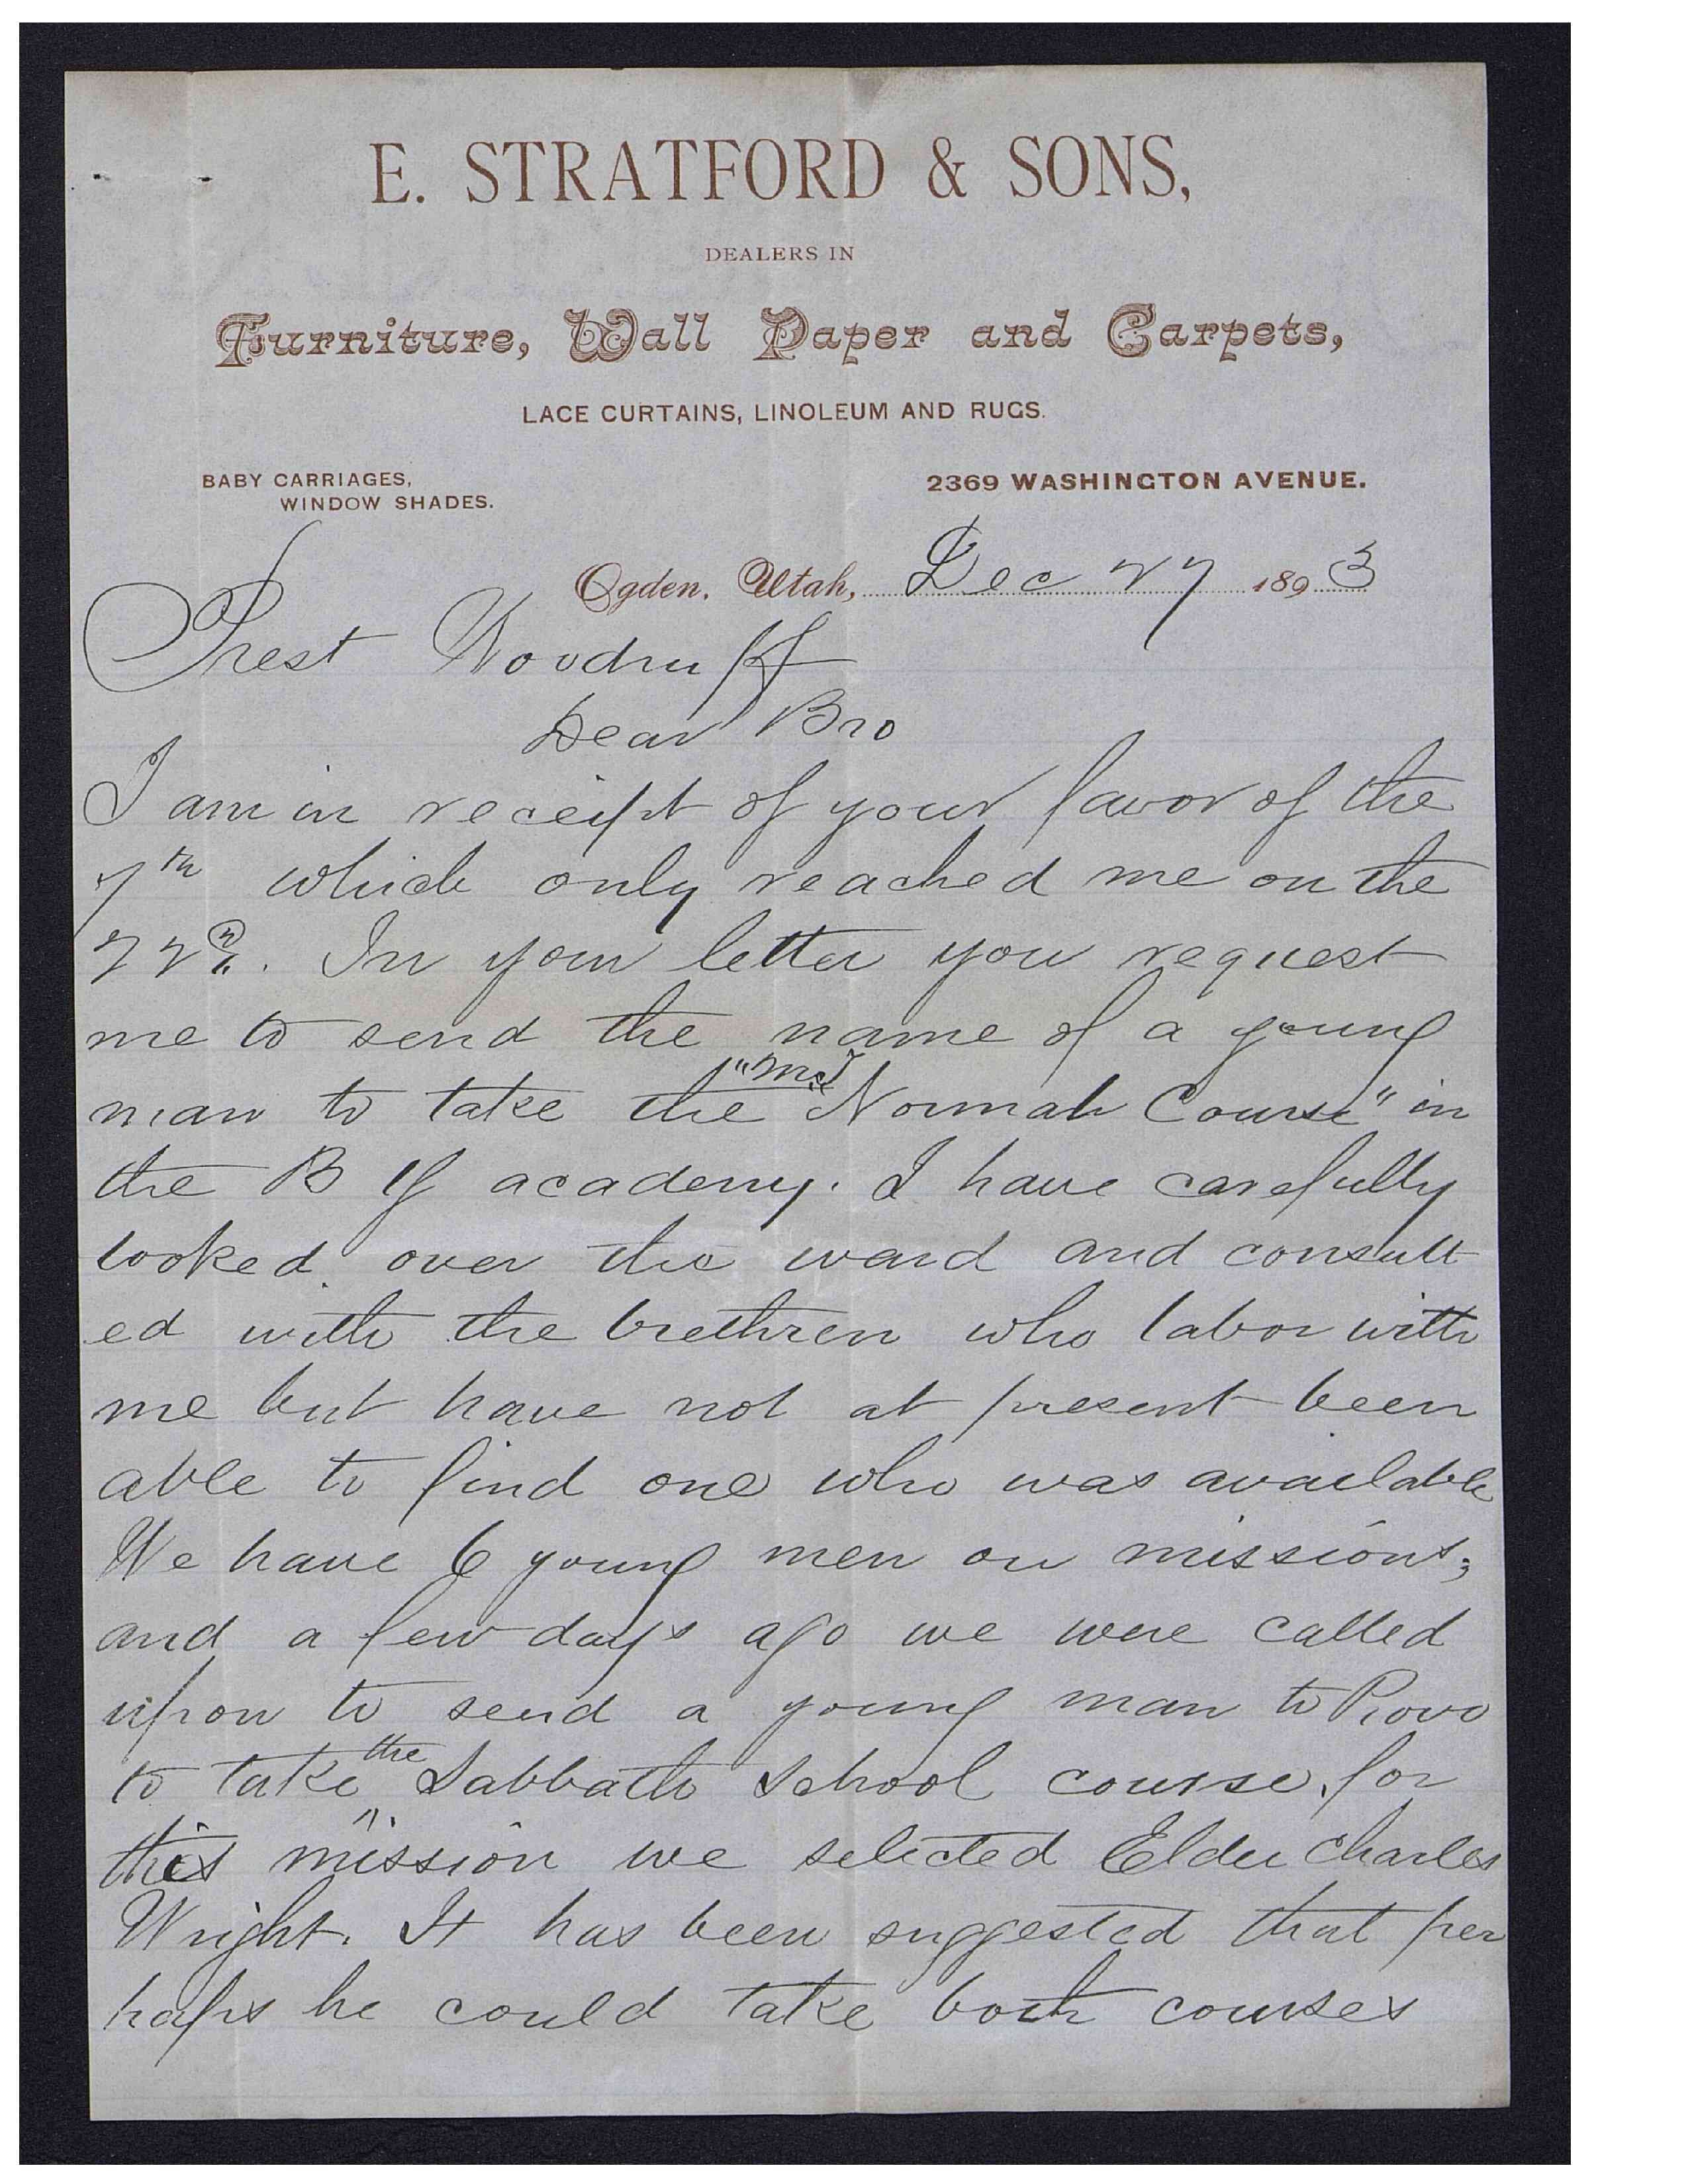 E. STRATFORD & SONS,
DEALERS IN
Furniture, Wall Paper and Carpets,
LACE CURTAINS, LINOLEUM AND RUGS.
BABY CARRIAGES,
WINDOW SHADES.
2369 WASHINGTON AVENUE.
Ogden, Utah, Dec 27 1893
Prest Woodruff
Dear Bro
I am in receipt of your favor of the
7th which only reached me on the
22nd. In your letter you request
me to send the name of a young
man to take the "Normal Course" in
the B Y academy. I have carefully
looked over the ward and consult
ed with the brethren who labor with
me but have not at present been
able to find one who was available
We have 6 young men on missions,
and a few days ago we were called
upon to send a young man to Provo
to take the Sabbath School course. for
this mission we selected Elder Charles
Wright. It has been suggested that per
haps he could take both courses